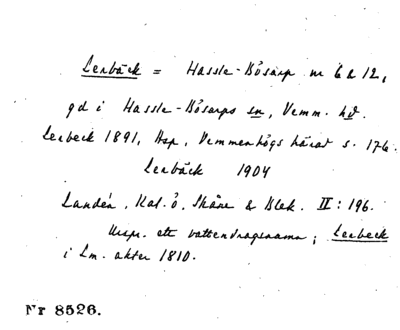 Lerbäck = Hassle-Bösarp nr 6 & 12,
gd i Hassle-Bösarps sn, Vemm. hd.
Lerbeck 1891, Hsp, Vemmenhögs härad s. 176.
Lerbäck 1904
Landén, Kat. ö. Skåne & Blek. II: 196.
Urspr. ett vattendragsnamn; Lerbeck
i Lm. akter 1810.
Nr 8526.